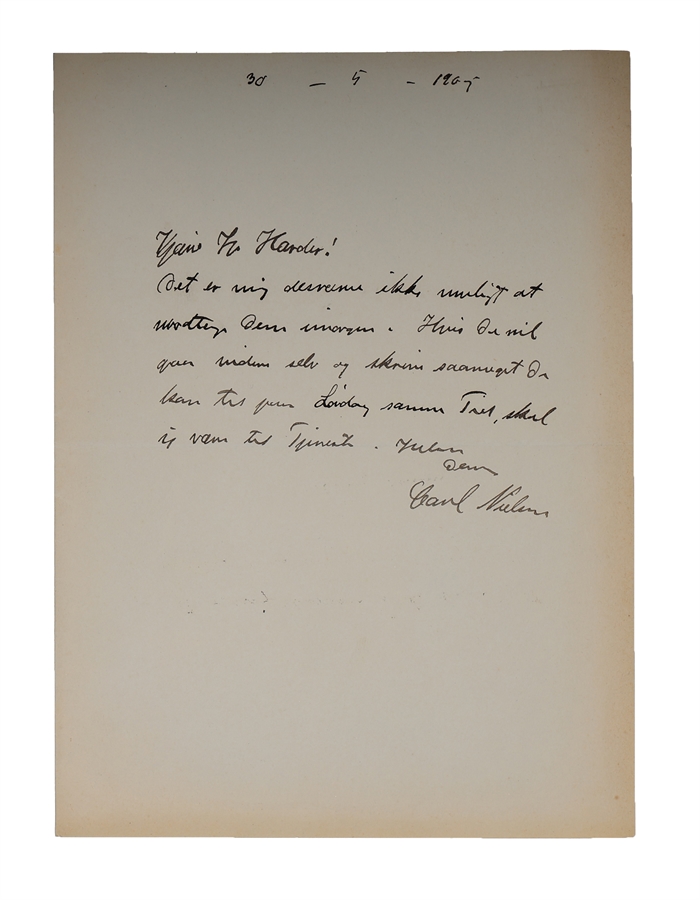 30 – 5 – 1905
Kjære Hr Harder!
Det er mig desværre ikke muligt at
modtage Dem imorgen. Hvis De vil
gaa videre selv og skrive saameget De
kan til paa Lørdag samme Tid, skal
jeg være til Tjeneste. Hilsen
Deres
Carl Nielsen